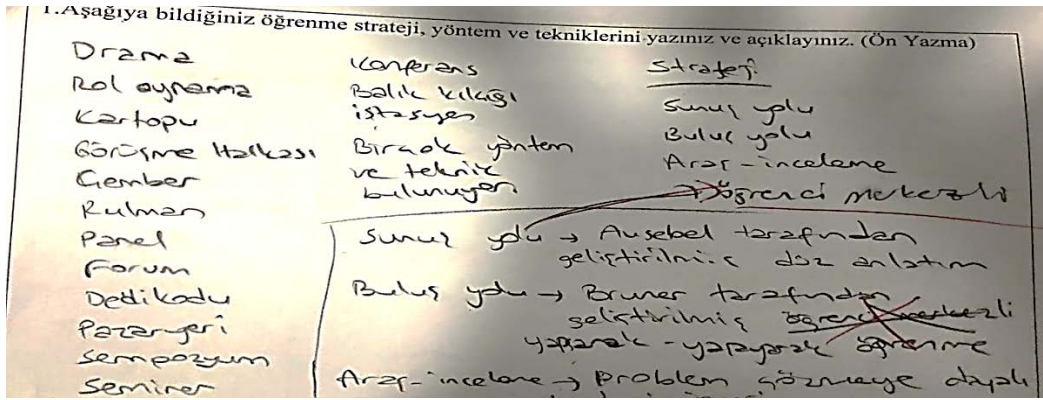 1.Aşağıya bildiğiniz öğrenme strateji, yöntem ve tekniklerini yazınız ve açıklayınız. (Ön Yazma)
Drama
Rol oynama
Kartopu
Görüşme Halkası
Çember
Rulman
Panel
Forum
Dedikodu
Pazaryeri
Sempozyum
Seminer
Konferans
Balık kılçığı
istasyon
Birçok yöntem
ve teknik
bulunuyor.
Strateji
Sunuş yolu
Buluş yolu
Araş-inceleme
Öğrenci merkezli
Sunuş yolu → Ausebel tarafından
geliştirilmiş düz anlatım
Buluş yolu → Bruner tarafından
geliştirilmiş öğrenci merkezli
yaparak - yaşayarak öğrenme
Araş-inceleme → Problem çözmeye dayalı